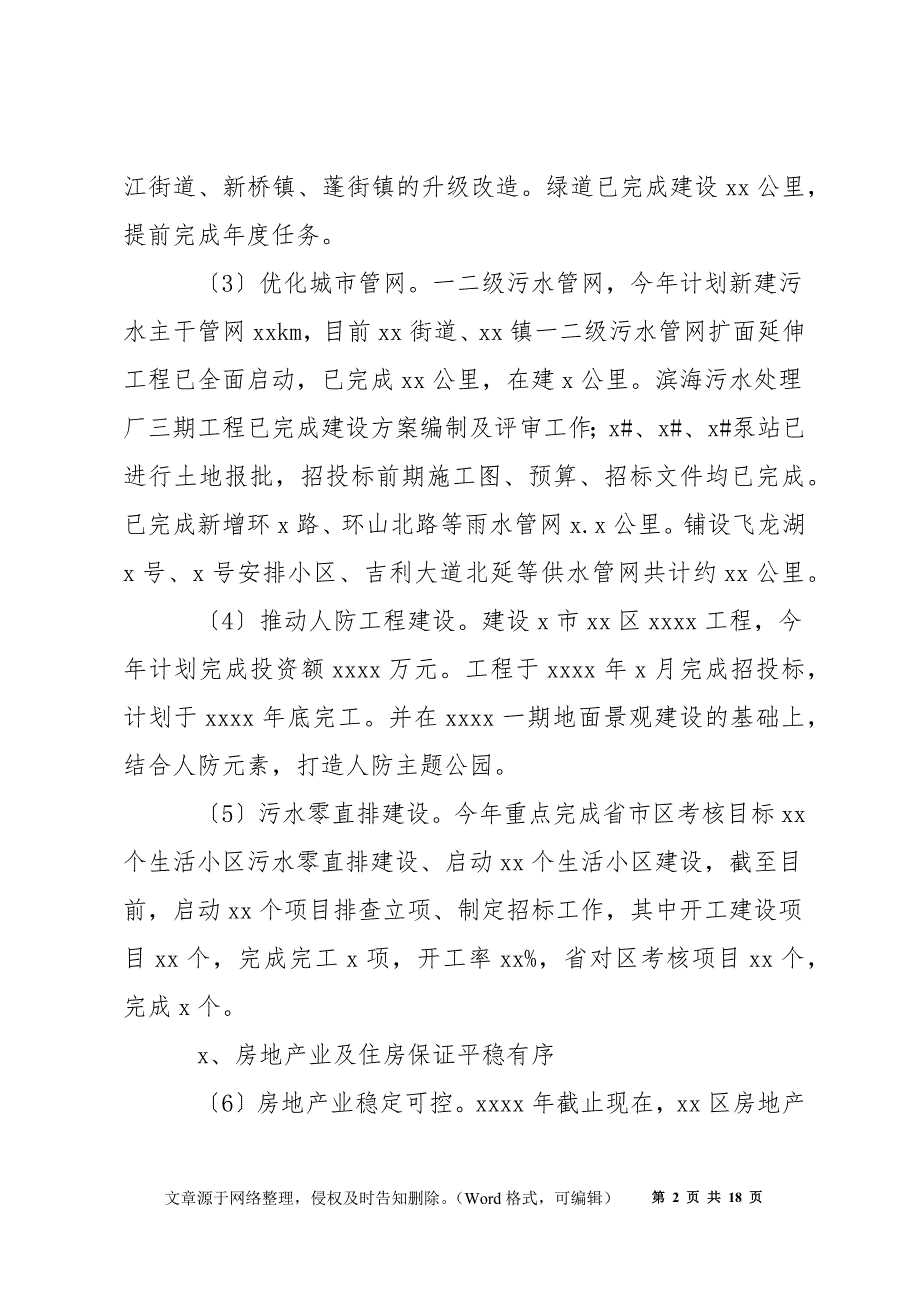 江街道、新桥镇、蓬街镇的升级改造。绿道已完成建设 xx 公里，
提前完成年度任务。
〔3〕优化城市管网。一二级污水管网，今年计划新建污
水主干管网 xxkm，目前 xx 街道、xx 镇一二级污水管网扩面延伸
工程已全面启动，已完成 xx 公里，在建 x 公里。滨海污水处理
厂三期工程已完成建设方案编制及评审工作；x#、x#、x#泵站已
进行土地报批，招投标前期施工图、预算、招标文件均已完成。
已完成新增环 x 路、环山北路等雨水管网 x.x 公里。铺设飞龙湖
x 号、x 号安排小区、吉利大道北延等供水管网共计约 xx 公里。
〔4〕推动人防工程建设。建设 x 市 xx 区 xxxx 工程，今
年计划完成投资额 xxxx 万元。工程于 xxxx 年 x 月完成招投标，
计划于 xxxx 年底完工。并在 xxxx 一期地面景观建设的基础上，
结合人防元素，打造人防主题公园。
〔5〕污水零直排建设。今年重点完成省市区考核目标 xx
个生活小区污水零直排建设、启动 xx 个生活小区建设，截至目
前，启动 xx 个项目排查立项、制定招标工作，其中开工建设项
目 xx 个，完成完工 x 项，开工率 xx%，省对区考核项目 xx 个，
完成 x 个。
x、房地产业及住房保证平稳有序
〔6〕房地产业稳定可控。xxxx 年截止现在，xx 区房地产
文章源于网络整理，侵权及时告知删除。（Word 格式，可编辑） 第 2 页 共 18 页